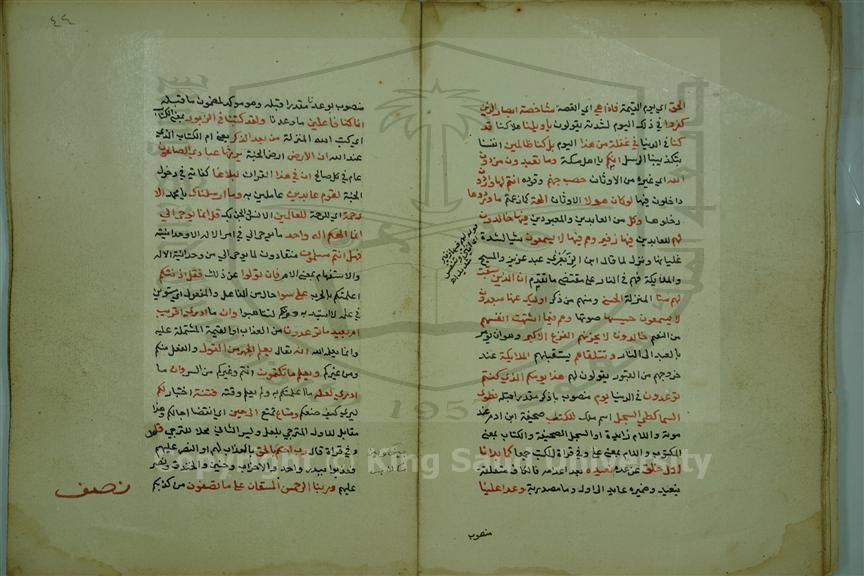 الحق اي يوم القيمة فاذا هي اي القصة شاخصة ابصار الذين
كفروا في ذلك اليوم لشدته يقولون يا ويلنا هلاكنا قد
كنا في الدنيا في غفلة من هذا اليوم بل كنا ظالمين انفسنا
بتكذيبنا الرسل انكم يا اهل مكة وما تعبدون من دون
الله اي غيره من الاوثان حصب جهنم وقوده انتم لها واردون
داخلون فيها لو كان هولا الاوثان الهة كما زعمتم ما وردوها
دخلوها وكل من العابدين والمعبودين فيها خالدون
لهم للعابدين فيها زفير وهم فيها لا يسمعون شيا لشدة
غليانها ونزل لما قال ابن الزبعرى عبد عزير والمسيح
والملايكة فهم في النار على مقتضى ما تقدم ان الذين سبقت
لهم منا المنزلة الحسنى ومنهم من ذكر اوليك عنها مبعدون
لا يسمعون حسيسها صوتها وهم فيما اشتهت انفسهم
من النعيم خالدون لا يحزنهم الفزع الاكبر وهو ان يومر
بالعبد الى النار وتتلقاهم يستقبلهم الملايكة عند
خروجهم من القبور يقولون لهم هذا يومكم الذي كنتم
توعدون في الدنيا يوم منصوب باذكر مقدرا قبله نطوي
السما كطي السجل اسم ملك للكتاب صحيفة ابن ادم عند
موته واللام زايدة او السجل الصحيفة والكتاب بمعنى
المكتوب واللام بمعنى على وفي قراة للكتب جمعا كما بدانا
اول خلق عن عدم نعيده بعد اعدامه فالكاف متعلقة
بنعيد وضميره عايد الى اول وما مصدرية وعدا علينا
منصوب
٤٤
منصوب بوعدنا مقدرا قبله وهو موكد لمضمون ما قبله
انا كنا فاعلين ما وعدنا ولقد كتبنا في الزبور بمعنى الكتاب
اي كتب الله المنزلة من بعد الذكر بمعنى ام الكتاب الذي
عند الله ان الارض ارض الجنة يرثها عبادي الصالحون
عام في كل صالح ان في هذا القران لبلاغا كفاية في دخول
الجنة لقوم عابدين عاملين به وما ارسلناك يا محمد الا
رحمة اي للرحمة للعالمين الانس والجن بك قل انما يوحى الي
انما الهكم اله واحد ما يوحى الي في امر الاله الا وحدانيته
فهل انتم مسلمون منقادون لما يوحى الي من وحدانية الاله
والاستفهام بمعنى الامر فان تولوا عن ذلك فقل اذنتكم
اعلمتكم بالحرب على سوا حال من الفاعل والمفعول اي مستوين
في علمه لا استبد به دونكم لتتاهبوا وان ما ادري اقريب
ام بعيد ما توعدون من العذاب او القيمة المشتملة عليه
وانما يعلمه الله انه تعالى يعلم الجهر من القول والفعل منكم
ومن غيركم ويعلم ما تكتمون انتم وغيركم من السر وان ما
ادري لعله ما اعلمتكم به ولم يعلم وقته فتنة اختبار لكم
ليرى كيف صنعكم ومتاع تمتع الى حين اي انقضا اجالكم وهذا
مقابل للاول المترجى بلعل وليس الثاني محلا للترجي قل
وفي قراة قال رب احكم بالحق بالعذاب لهم او النصر عليهم
فعذبوا ببدر واحد والاحزاب وحنين والخندق ونصر
عليهم وربنا الرحمن المستعان على ما تصفون من كذبكم
نصف
Copyright © King Saud University
1957